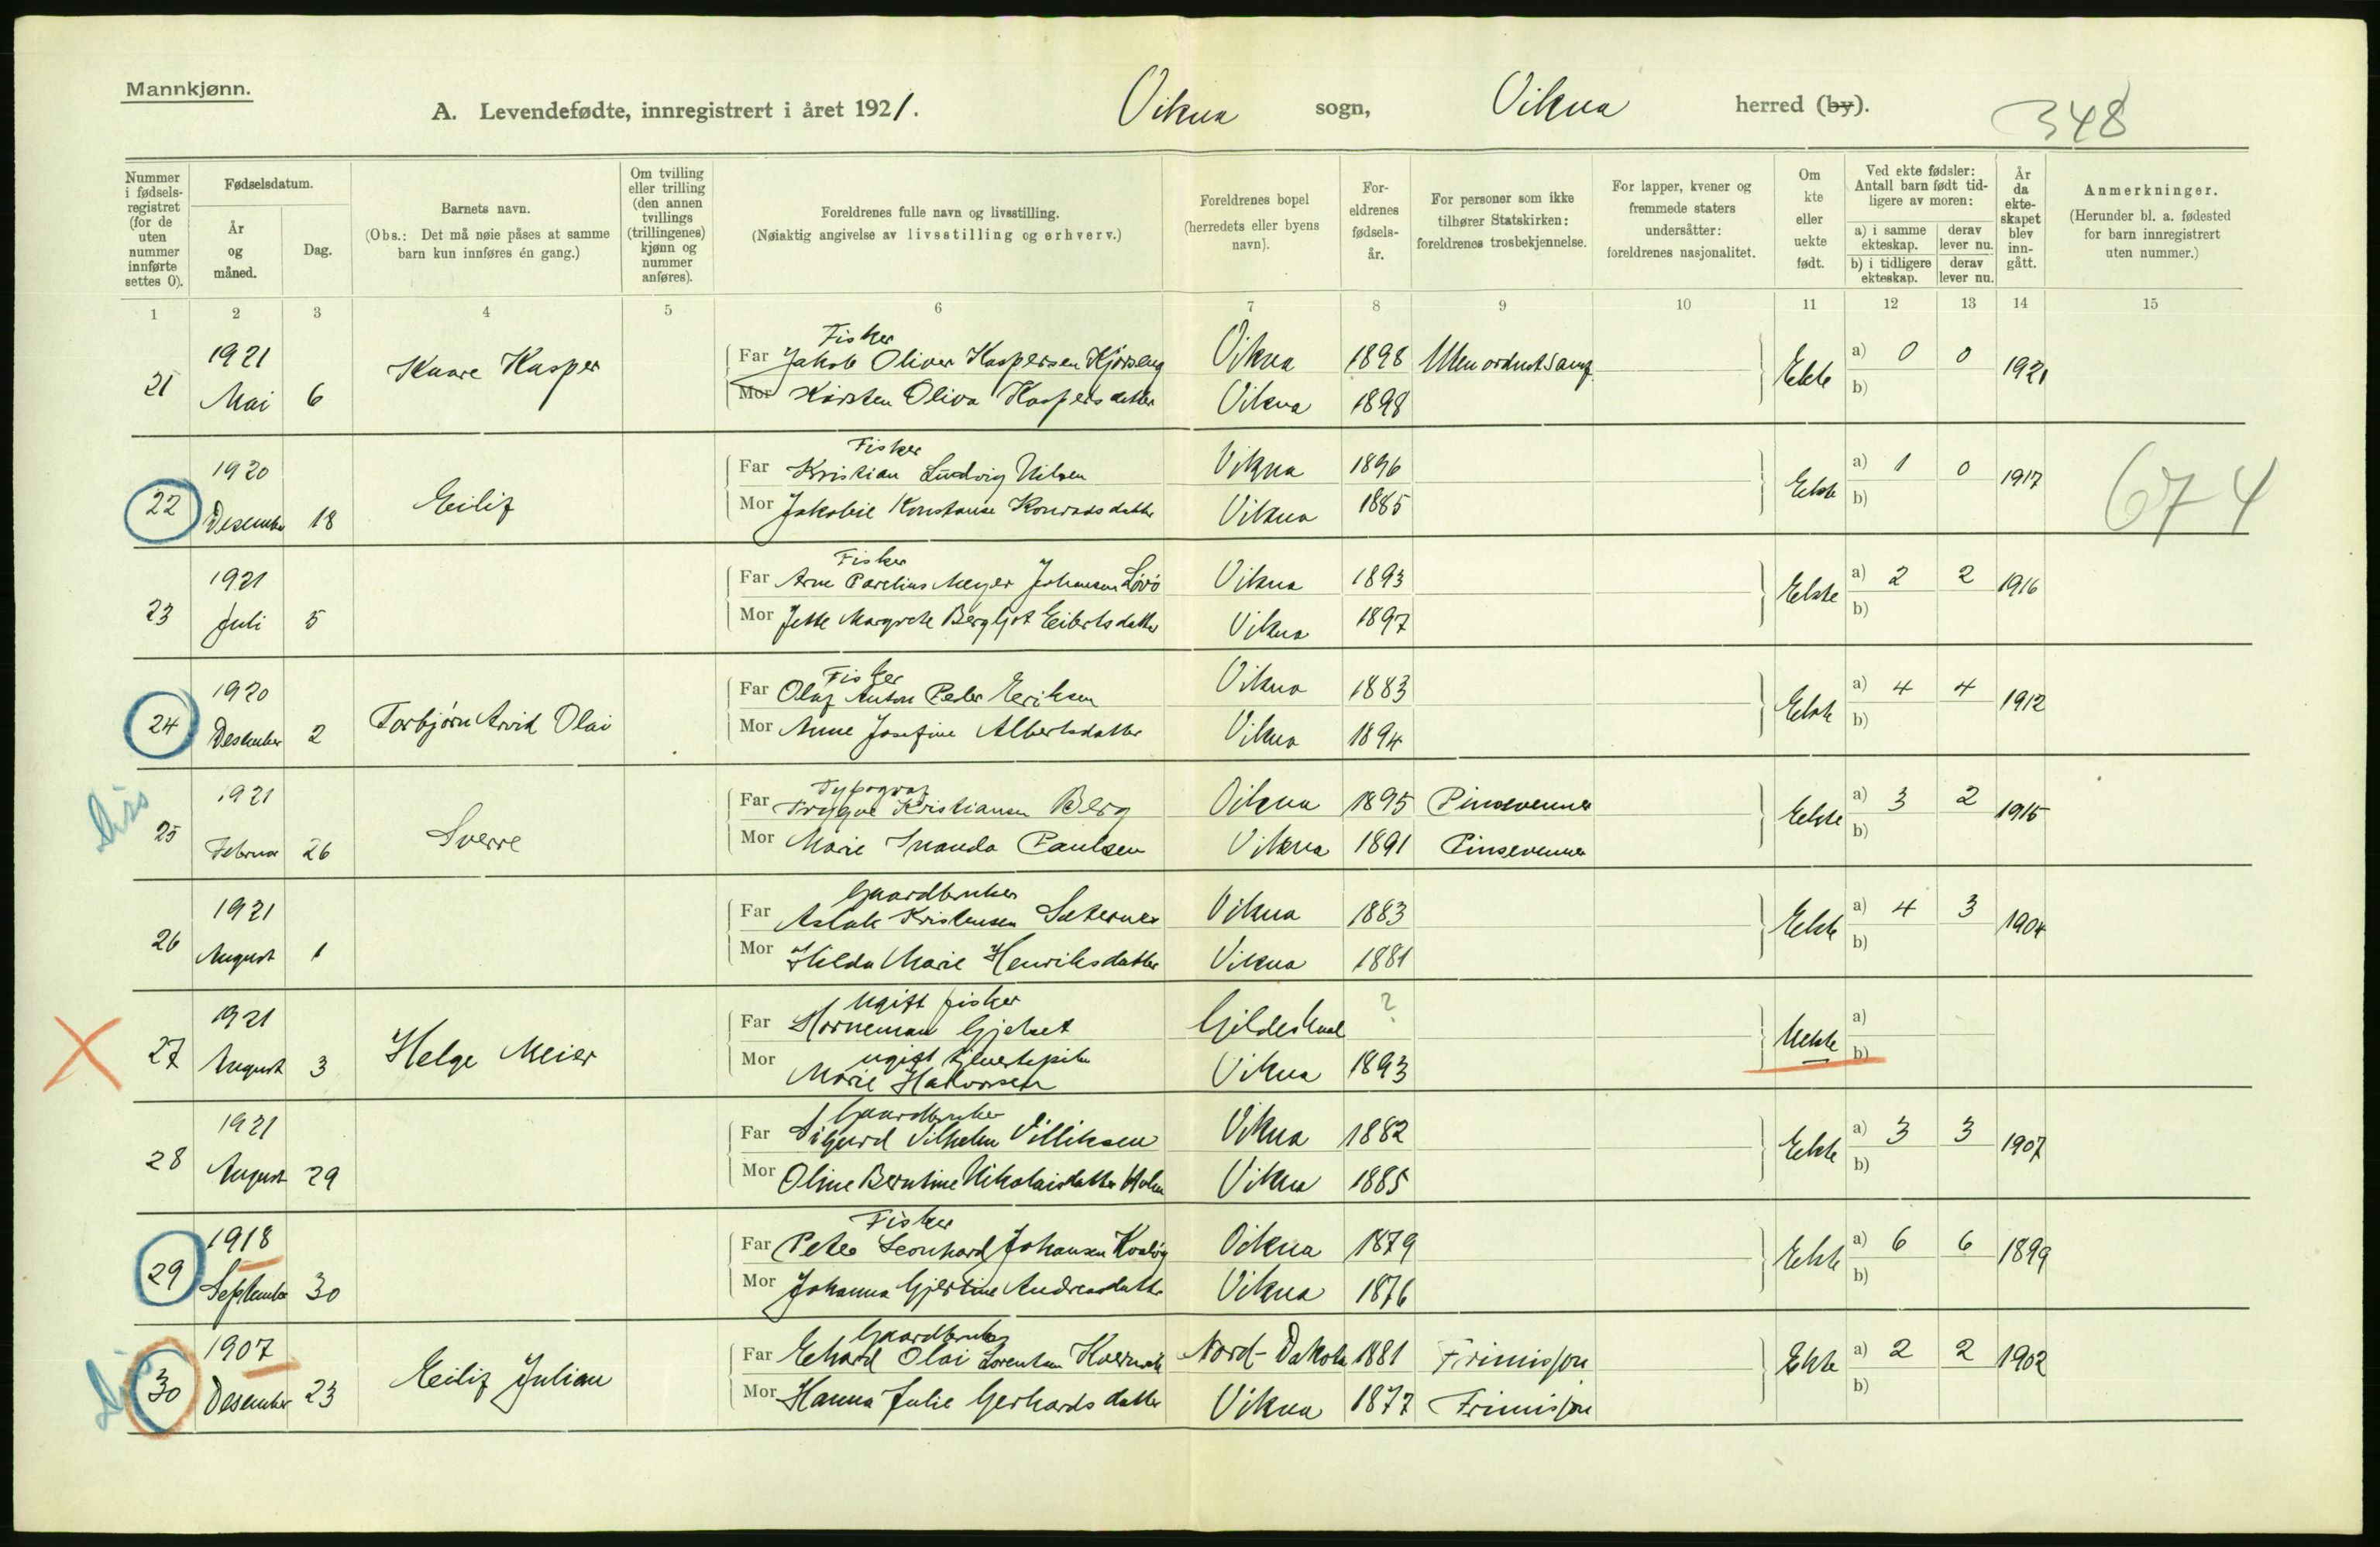 Mannkjønn.
A. Levendefødte, innregistrert i året 1921. Vikna sogn, Vikna herred (by).
348
Nummer i fødselsregistret (for de uten nummer innførte settes 0).
Fødselsdatum.
År og måned.
Dag.
Barnets navn.
(Obs.: Det må nøie påses at samme barn kun innføres én gang.)
Om tvilling eller trilling (den annen tvillings (trillingenes) kjønn og nummer anføres).
Foreldrenes fulle navn og livsstilling.
(Nøiaktig angivelse av livsstilling og erhverv.)
Foreldrenes bopel (herredets eller byens navn).
Foreldrenes fødselsår.
For personer som ikke tilhører Statskirken: foreldrenes trosbekjennelse.
For lapper, kvener og fremmede staters undersåtter: foreldrenes nasjonalitet.
Om kte eller uekte født.
Ved ekte fødsler: Antall barn født tidligere av moren:
a) i samme ekteskap.
derav lever nu.
b) i tidligere ekteskap.
derav lever nu.
År da ekteskapet blev inngått.
Anmerkninger.
(Herunder bl. a. fødested for barn innregistrert uten nummer.)
1 2 3 4 5 6 7 8 9 10 11 12 13 14 15
Fisker
21 1921 Mai 6 Kaare Kasper
Far Jakob Oliver Kaspersen Kjørseng Vikna 1898 Uten ordnet samf. Ekte a) 0 0 1921
Mor Karsten Oliva Kaspersdatter Vikna 1898 b)
Fisker
22 1920 Desember 18 Eilif
Far Kristian Ludvig Nilsen Vikna 1896 Ekte a) 1 0 1917
Mor Jakobie Konstanse Konradsdatter Vikna 1885 b)
674
Fisker
23 1921 Juli 5
Far Arne Parelius Meyer Johansen Lövö Vikna 1893 Ekte a) 2 2 1916
Mor Jette Margrete Bergljot Eibertsdatter Vikna 1897 b)
Fisker
24 1920 Desember 2 Torbjørn Arvid Olai
Far Olaf Anton Peder Eriksen Vikna 1883 Ekte a) 4 4 1912
Mor Anne Josefine Albertsdatter Vikna 1894 b)
Diss
Typograf
25 1921 Februar 26 Sverre
Far Trygve Kristiansen Berg Vikna 1895 Pinsevenner Ekte a) 3 2 1915
Mor Marie Inanda Paulsen Vikna 1891 Pinsevenner b)
Gaardbruker
26 1921 August 1
Far Aslak Kristensen Sæternes Vikna 1883 Ekte a) 4 3 1904
Mor Hilda Marie Henriksdatter Vikna 1881 b)
Ugift fisker
27 1921 August 3 Helge Meier
Far Horneman Gjelset Gildeskaal ? Uekte a)
ugift tjenestepike
Mor Marie Halvorsen Vikna 1893 b)
Gaardbruker
28 1921 August 29
Far Sigurd Vilhelm Villiksen Vikna 1882 Ekte a) 3 3 1907
Mor Oline Berntine Nikolaisdatter Holm Vikna 1885 b)
Fisker
29 1918 September 30
Far Peter Leonhard Johansen Kvaløy Vikna 1879 Ekte a) 6 6 1899
Mor Johanna Gjertine Andreasdatter Vikna 1876 b)
Gaardbruker
30 1907 Desember 23 Eilif Julian
Far Olai Lorentsen Nord-Dakota 1881 Frimisjon Ekte a) 2 2 1902
Mor Hanna Julie Gerhardsdatter Vikna 1877 Frimisjon b)